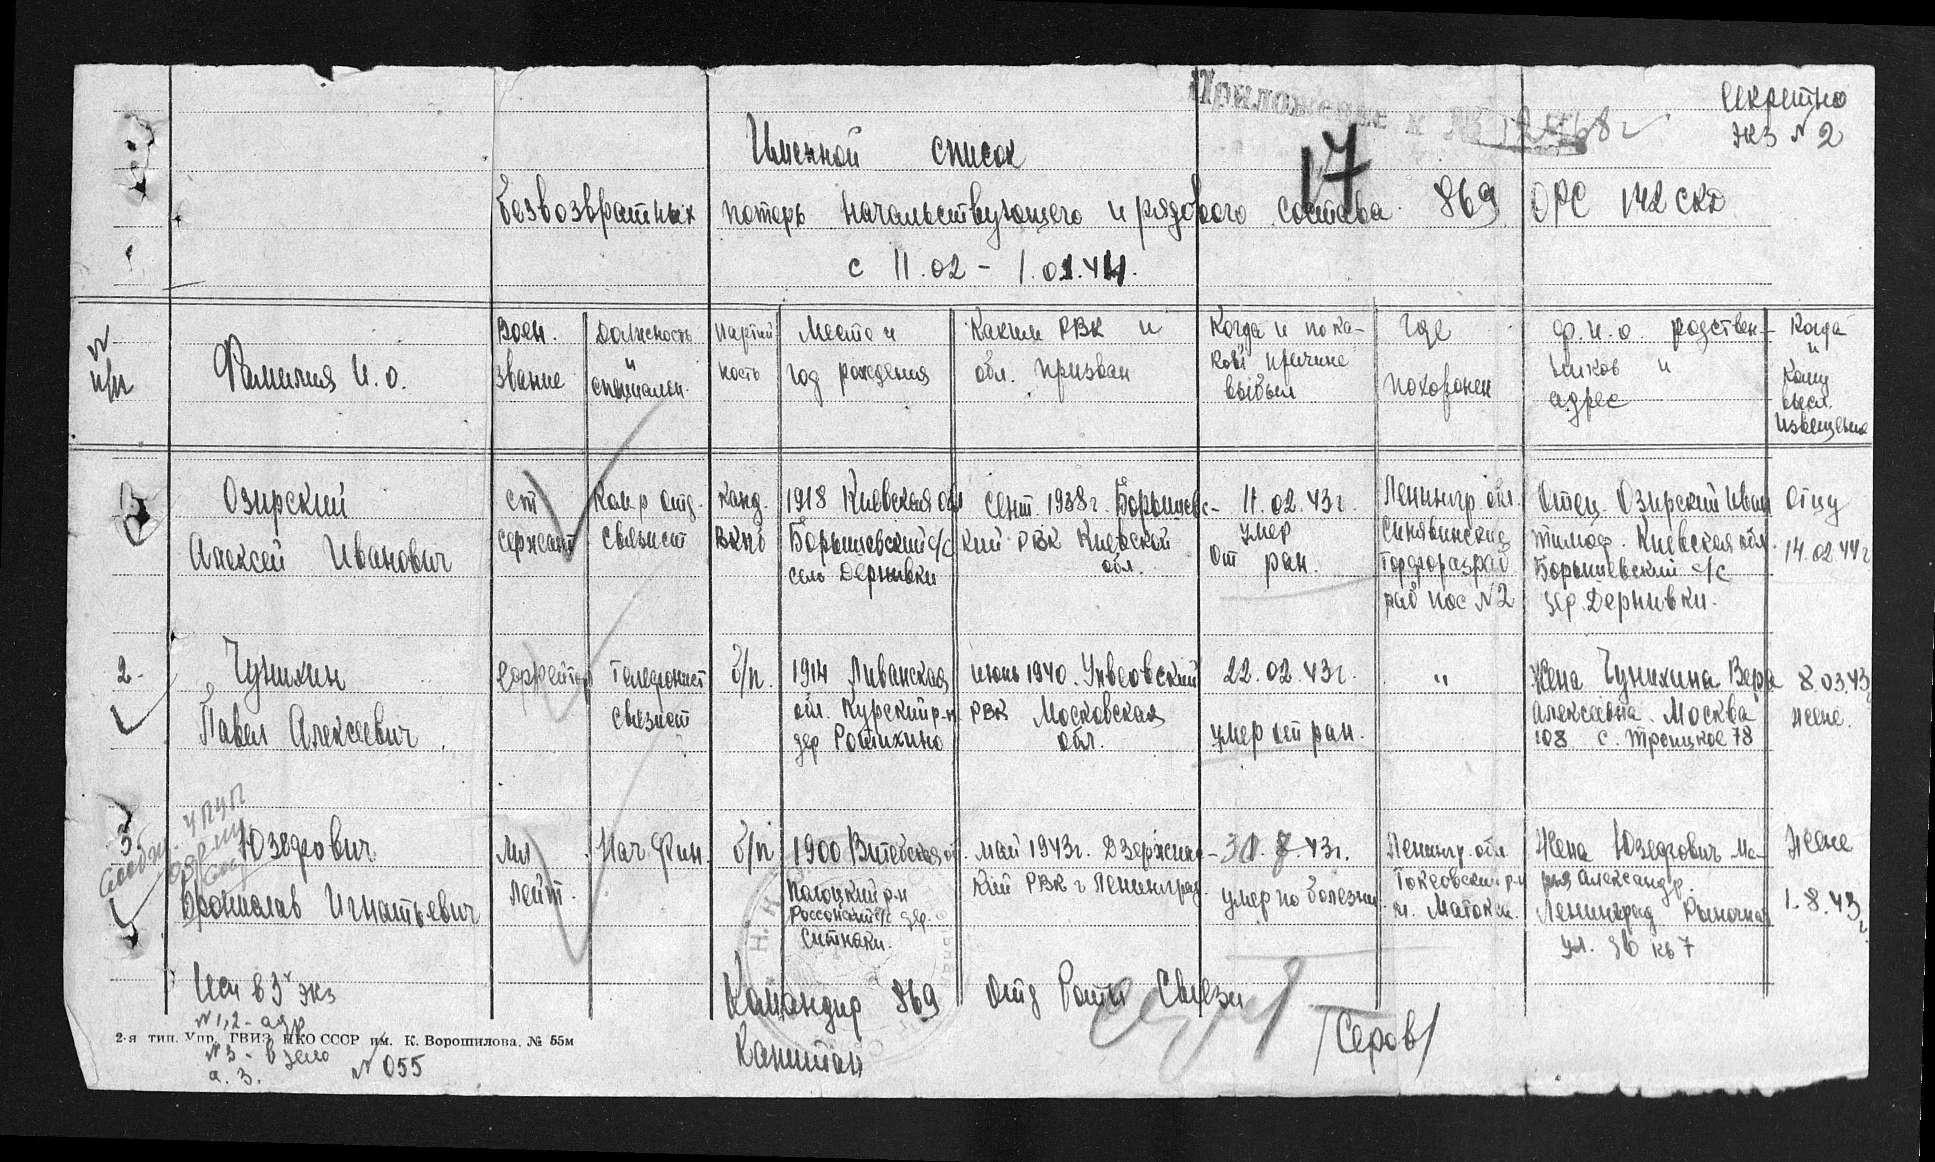 Секретно
экз № 2
Приложение к №
17
Именной список
безвозвратных потерь начальствующего и рядового состава 869 ОРС 142 скд
с 11.02 - 1.01.44.
№ п/п
Фамилия И.о.
Воен. звание
Должность и специальн.
Партийность
Место и год рождения
Каким РВК и обл. призван
Когда и по какой причине выбыл
Где похоронен
Ф.и.о. родственников и адрес
Когда и кому высл. извещение
1
Озирский
Алексей Иванович
ст сержант
Ком-р отд. связист
Канд. ВКПб
1918 Киевская обл
Борышевский с/с
село Дернивки
сент. 1938г. Борышевс-
кий РВК Киевской
обл.
11.02.43г.
умер
от ран.
Ленингр. обл.
Синявинские
Торфоразраб
раб пос №2
Отец Озирский Иван
Тимоф. Киевская обл.
Борышевский с/с
дер. Дернивки.
Отцу
14.02.44г
2.
Чунихин
Павел Алексеевич
ефрейтор
телефонист
связист
б/п.
1914 Ливенская
обл. Курский р-н
дер Ротихино
июнь 1940.
РВК Московская
обл.
22.02.43г.
умер от ран.
"
Жена Чунихина Вера
Алексеевна. Москва
108 с. Троицкое 78
8.03.43
жене.
3.
Юзефович
Бронислав Игнатьевич
мл лейт.
Нач. Фин.
б/п
1900 Витебская об
Полоцкий р-н
Россонский с/с дер.
Ситнаки.
май 1943г. Дзержинс-
кий РВК г Ленинград
30.7.43г.
умер по болезни
Ленингр. обл.
Токсовский р-н
м. Матокса.
Жена Юзефович Ма-
рия Александр.
Ленинград Рыночная
ул. 36 кв 7
Жене
1.8.43г.
Исп в 3х экз
№1,2 - адр
№3 - в дело
а. 3.
№ 055
2-я тип. Упр. ГВИЗ НКО СССР им. К. Ворошилова. № 55м
Командир 869 отд Роты Связи
Капитан
/Серов/